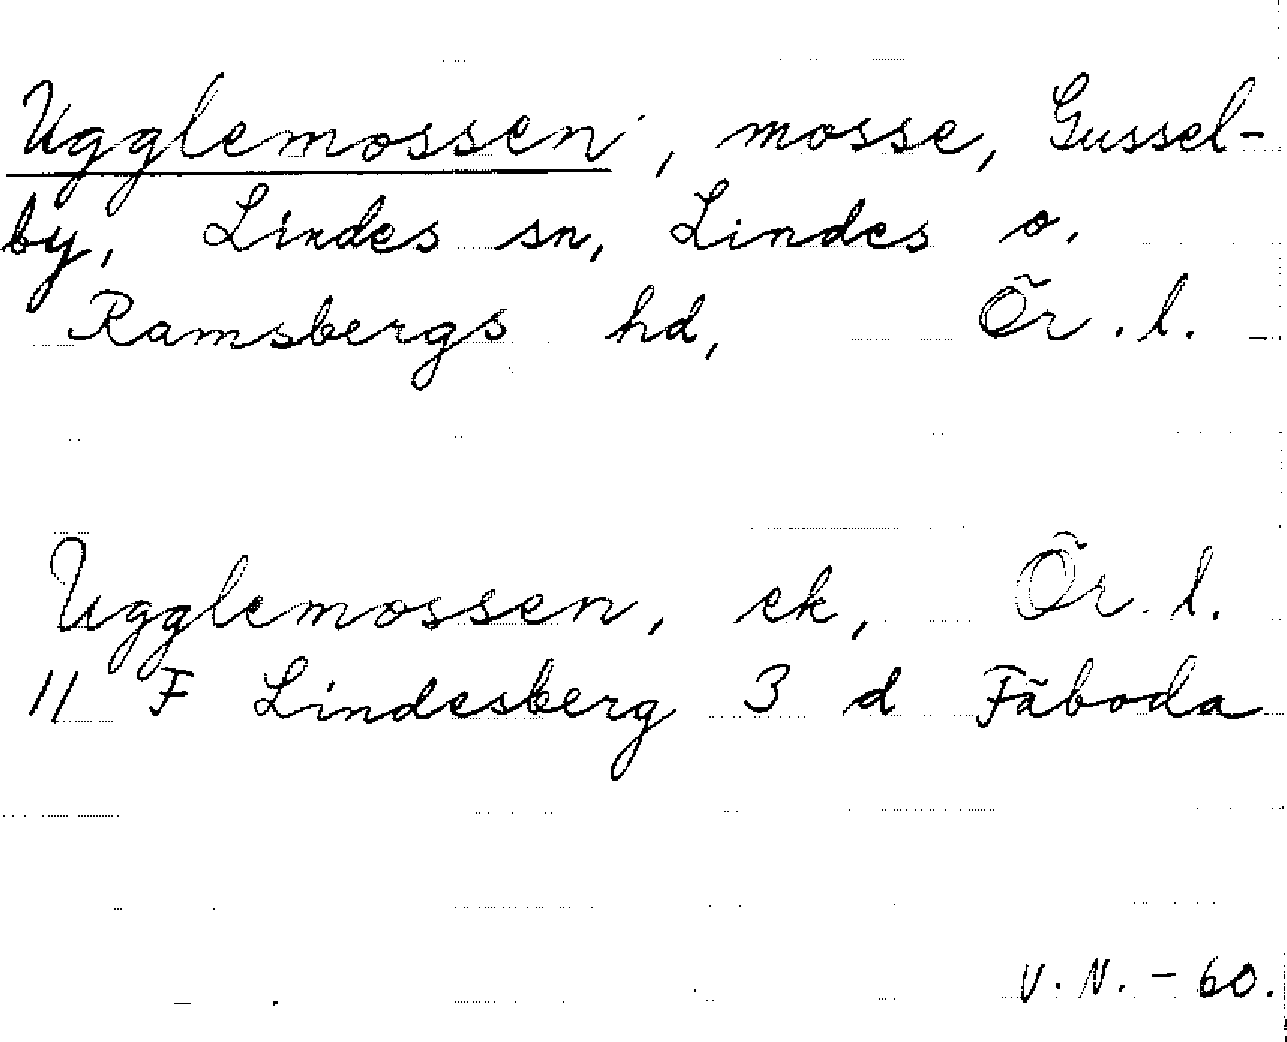 Ugglemossen, mosse, Gussel-
by, Lindes sn, Lindes o.
Ramsbergs hd, Ör. l.
Ugglemossen, ek, Ör. l.
11 F Lindesberg 3 d Fäboda
V. N. - 60.